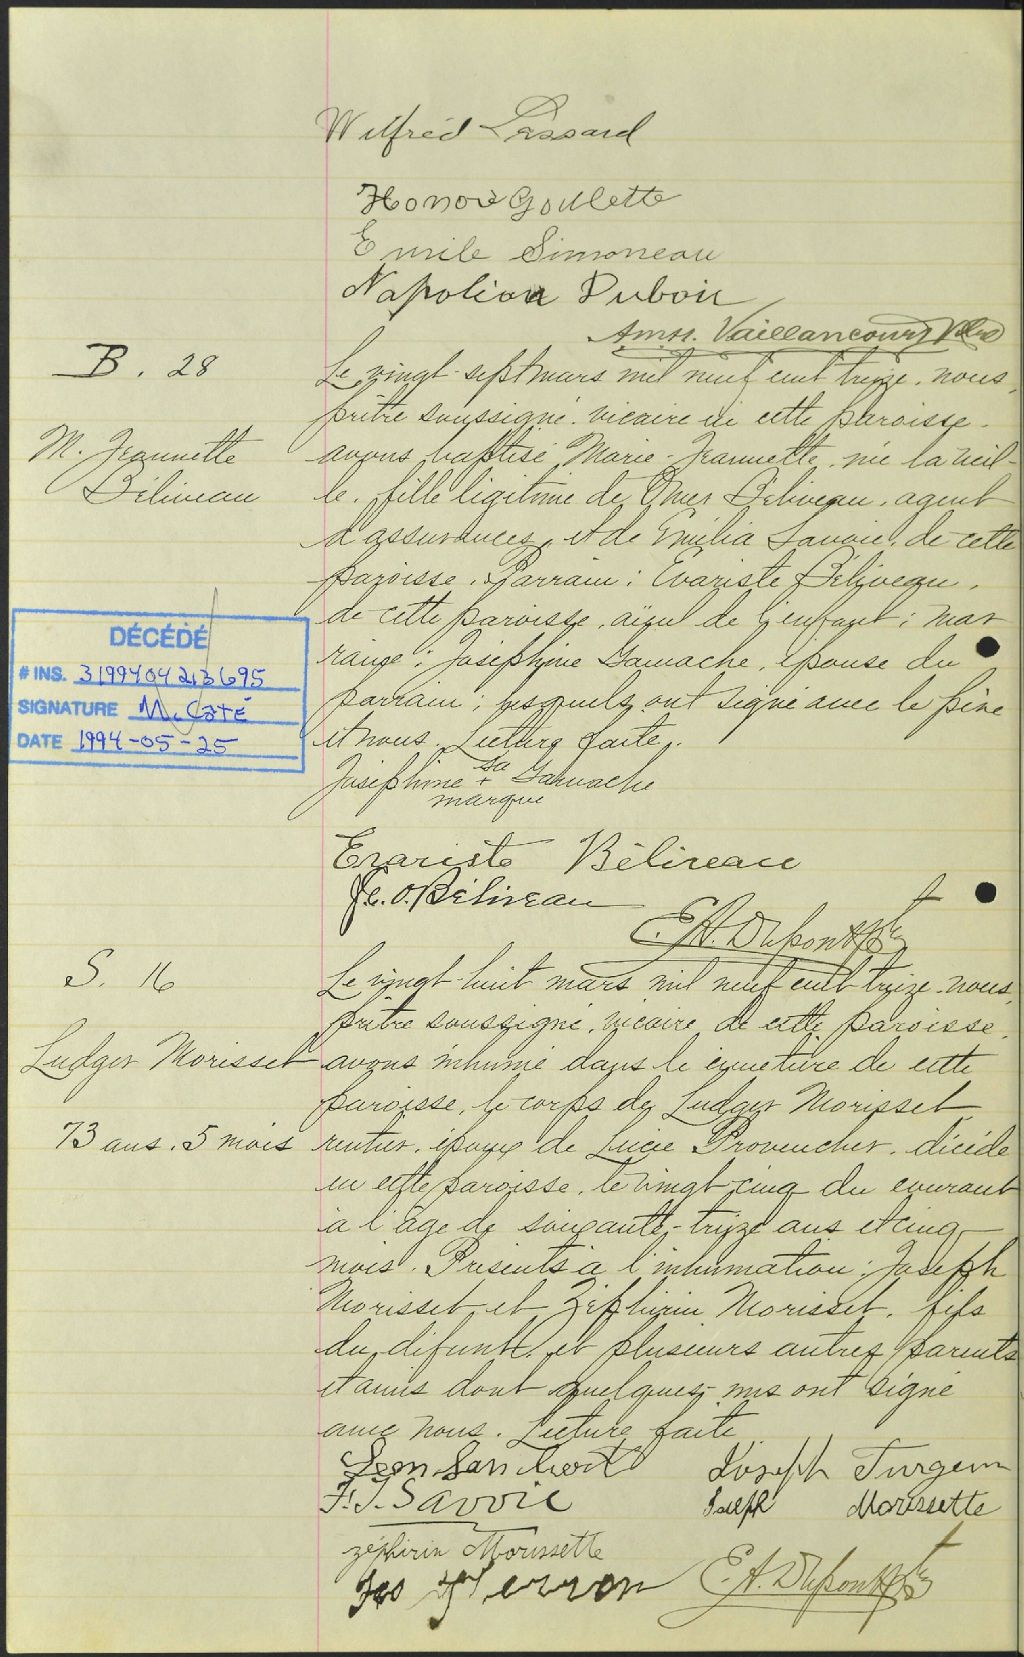 Wilfrid Lessard
Honoré Goulette
Emile Simoneau
Napolion Duboir
Amss. Vaillancourt Ptre
B. 28
Le vingt-sept mars mil neuf cent treize, nous,
prêtre soussigné, vicaire de cette paroisse,
M. Jeannette
Béliveau
avons baptisé Marie-Jeannette, née la veil-
le, fille légitime de Omer Béliveau, agent
d'assurances, et de Emilia Savoie, de cette
paroisse. Parrain: Evariste Béliveau,
de cette paroisse, aïeul de l'enfant; mar
raine: Joséphine Gamache, épouse du
parrain; lesquels ont signé avec le père
et nous. Lecture faite.
DÉCÉDÉ
# INS. 3199404213695
SIGNATURE M. Coté
DATE 1994-05-25
Joséphine sa + Gamache
marque
Evariste Béliveau
J.E.O. Béliveau
E. A. Dupont Ptre
S. 16
Le vingt-huit mars mil neuf cent treize, nous,
prêtre soussigné, vicaire de cette paroisse,
Ludger Morisset
avons inhumé dans le cimetière de cette
paroisse, le corps de Ludger Morisset,
73 ans. 5 mois
rentier, époux de Lucie Provencher, décédé
en cette paroisse, le vingt-cinq du courant
à l'âge de soixante-treize ans et cinq
mois. Présents à l'inhumation: Joseph
Morisset et Zéphirin Morisset, fils
du défunt, et plusieurs autres parents
et amis dont quelques-uns ont signé
avec nous. Lecture faite.
Léon Lambert
Joseph Turgeon
F. J. Savoie
Joseph Morissette
zéphirin Morissette
Perron
E. A. Dupont Ptre